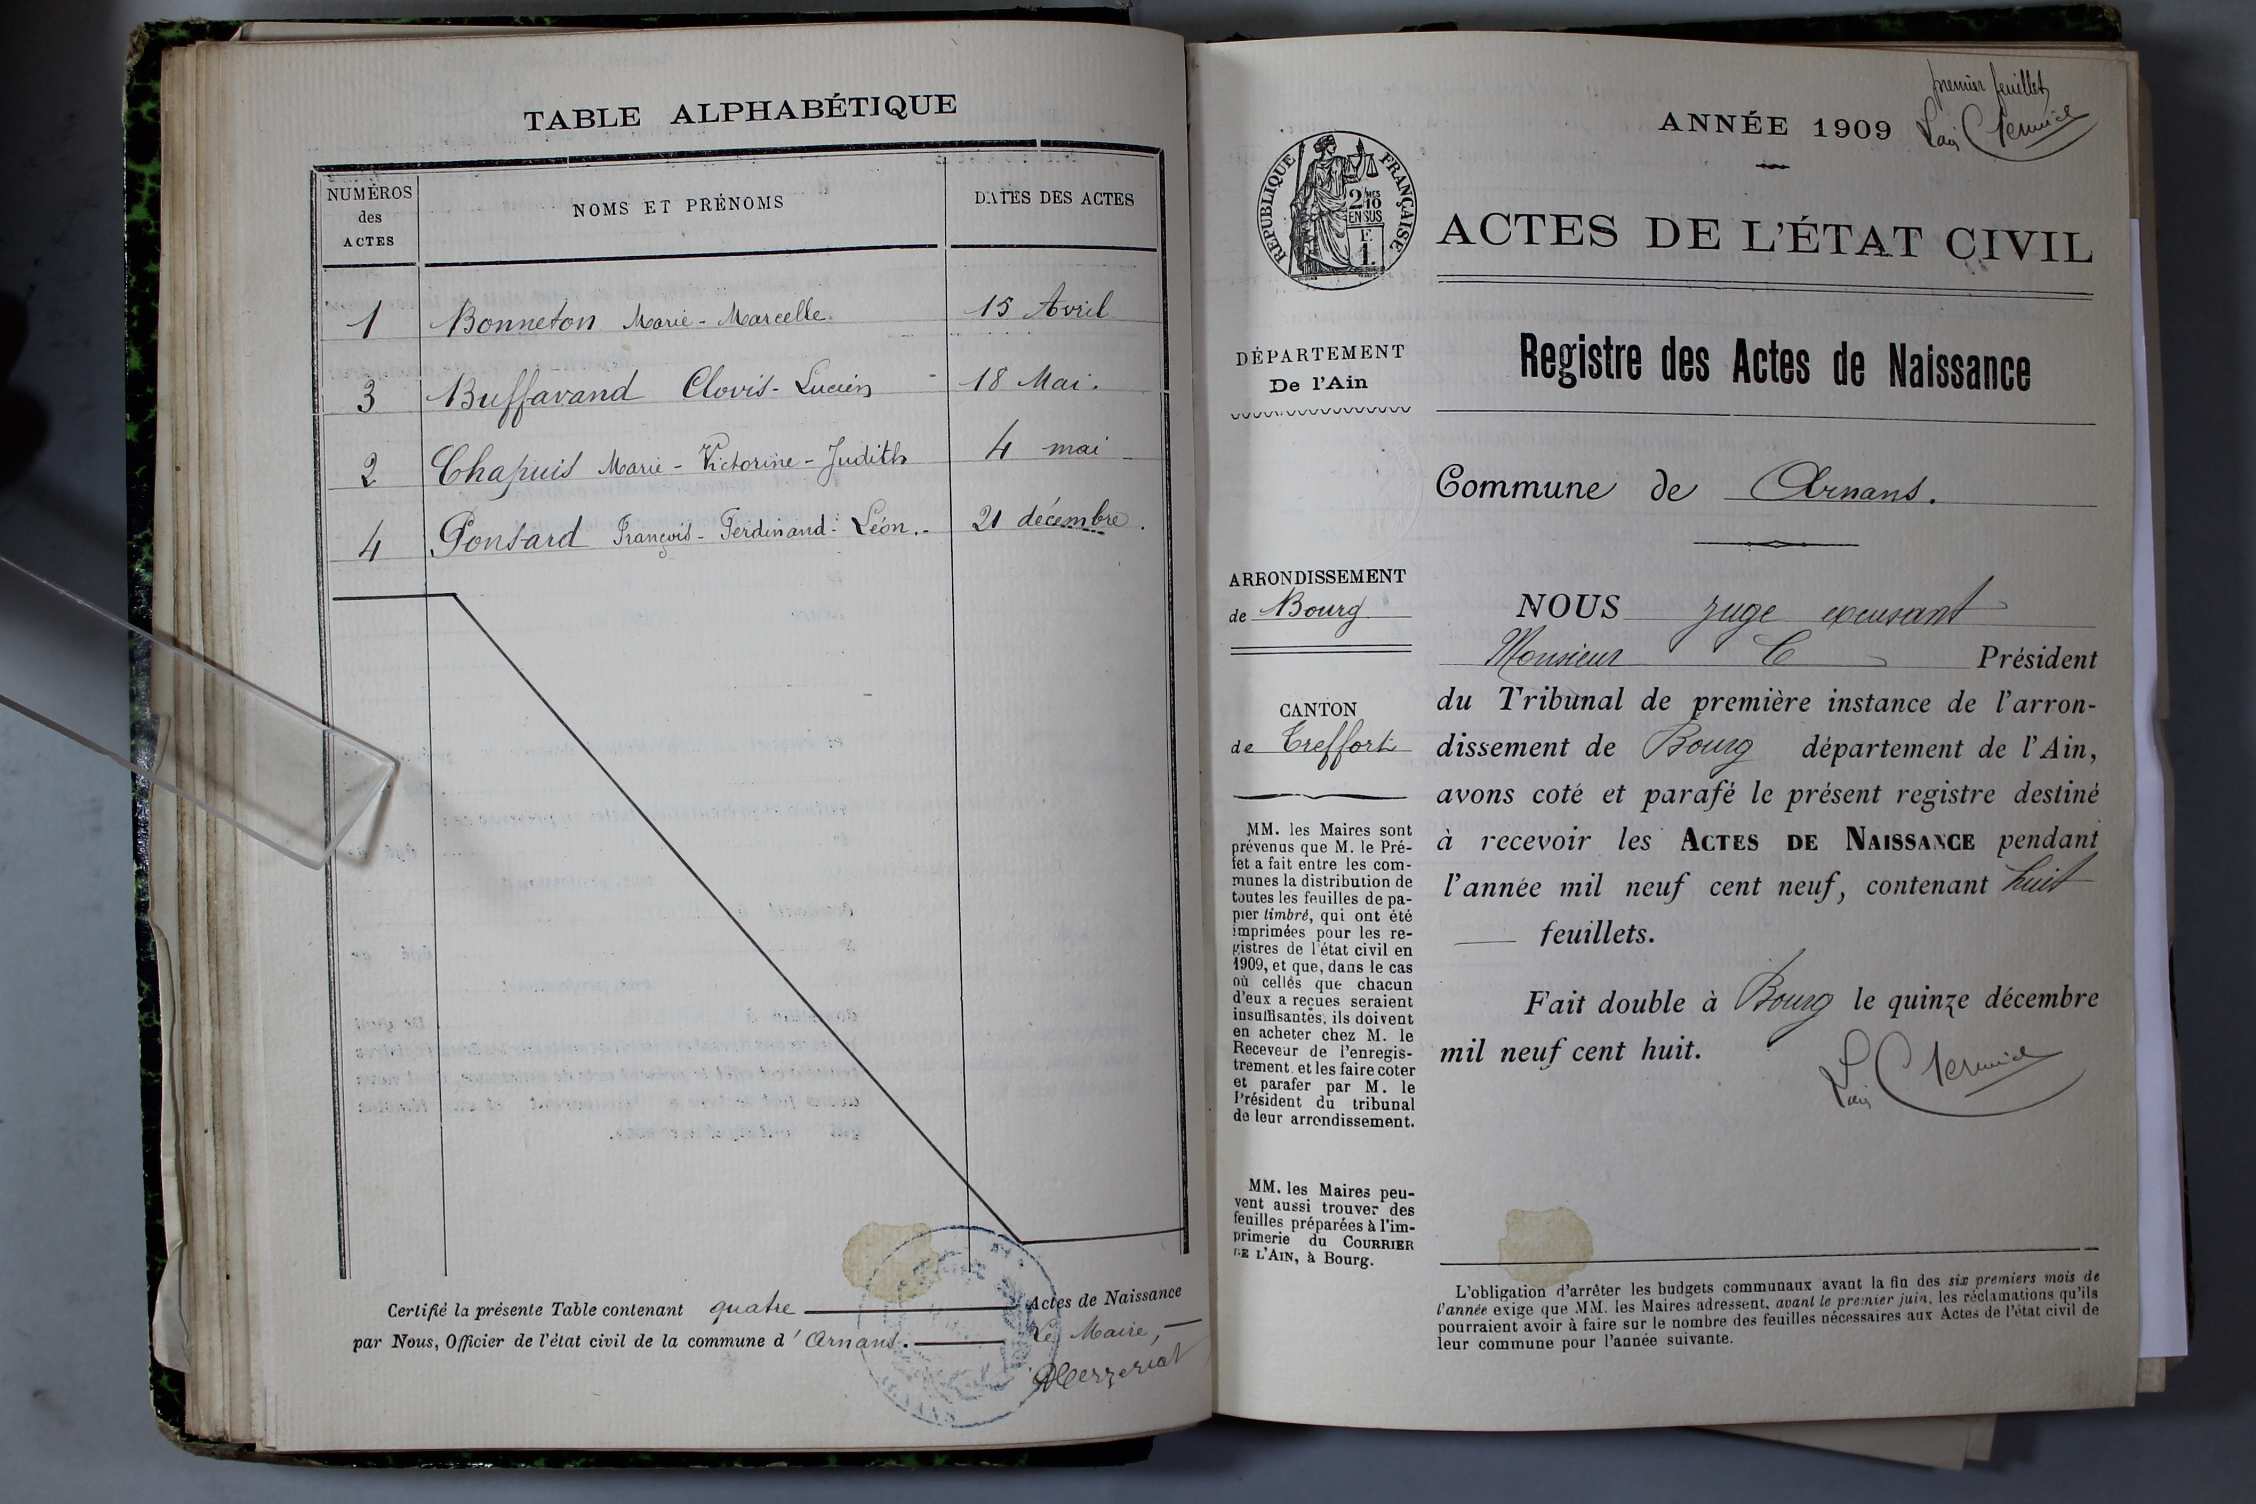 TABLE ALPHABÉTIQUE
NUMÉROS
des
ACTES
NOMS ET PRÉNOMS
DATES DES ACTES
1 Bonneton Marie-Marcelle. 15 Avril
3 Buffavand Clovis-Lucien 18 Mai.
2 Chapuis Marie-Victorine-Judith 4 mai
4 Ponsard François-Ferdinand-Léon.- 21 décembre.
Certifié la présente Table contenant quatre Actes de Naissance
par Nous, Officier de l'état civil de la commune d'Arnans. Le Maire,
premier feuillet
ANNÉE 1909
RÉPUBLIQUE FRANÇAISE
2/10
EN SUS
F.
1.
ACTES DE L'ÉTAT CIVIL
DÉPARTEMENT
De l'Ain
ARRONDISSEMENT
de Bourg
CANTON
de Treffort
MM. les Maires sont
prévenus que M. le Pré-
fet a fait entre les com-
munes la distribution de
toutes les feuilles de pa-
pier timbré, qui ont été
imprimées pour les re-
gistres de l'état civil en
1909, et que, dans le cas
où celles que chacun
d'eux a reçues seraient
insuffisantes, ils doivent
en acheter chez M. le
Receveur de l'enregis-
trement et les faire coter
et parafer par M. le
Président du tribunal
de leur arrondissement.
MM. les Maires peu-
vent aussi trouver des
feuilles préparées à l'im-
primerie du COURRIER
DE L'AIN, à Bourg.
Registre des Actes de Naissance
Commune de Arnans.
NOUS juge excusant
Monsieur Président
du Tribunal de première instance de l'arron-
dissement de Bourg département de l'Ain,
avons coté et parafé le présent registre destiné
à recevoir les ACTES DE NAISSANCE pendant
l'année mil neuf cent neuf, contenant huit
feuillets.
Fait double à Bourg le quinze décembre
mil neuf cent huit.
L'obligation d'arrêter les budgets communaux avant la fin des six premiers mois de
l'année exige que MM. les Maires adressent, avant le premier juin, les réclamations qu'ils
pourraient avoir à faire sur le nombre des feuilles nécessaires aux Actes de l'état civil de
leur commune pour l'année suivante.